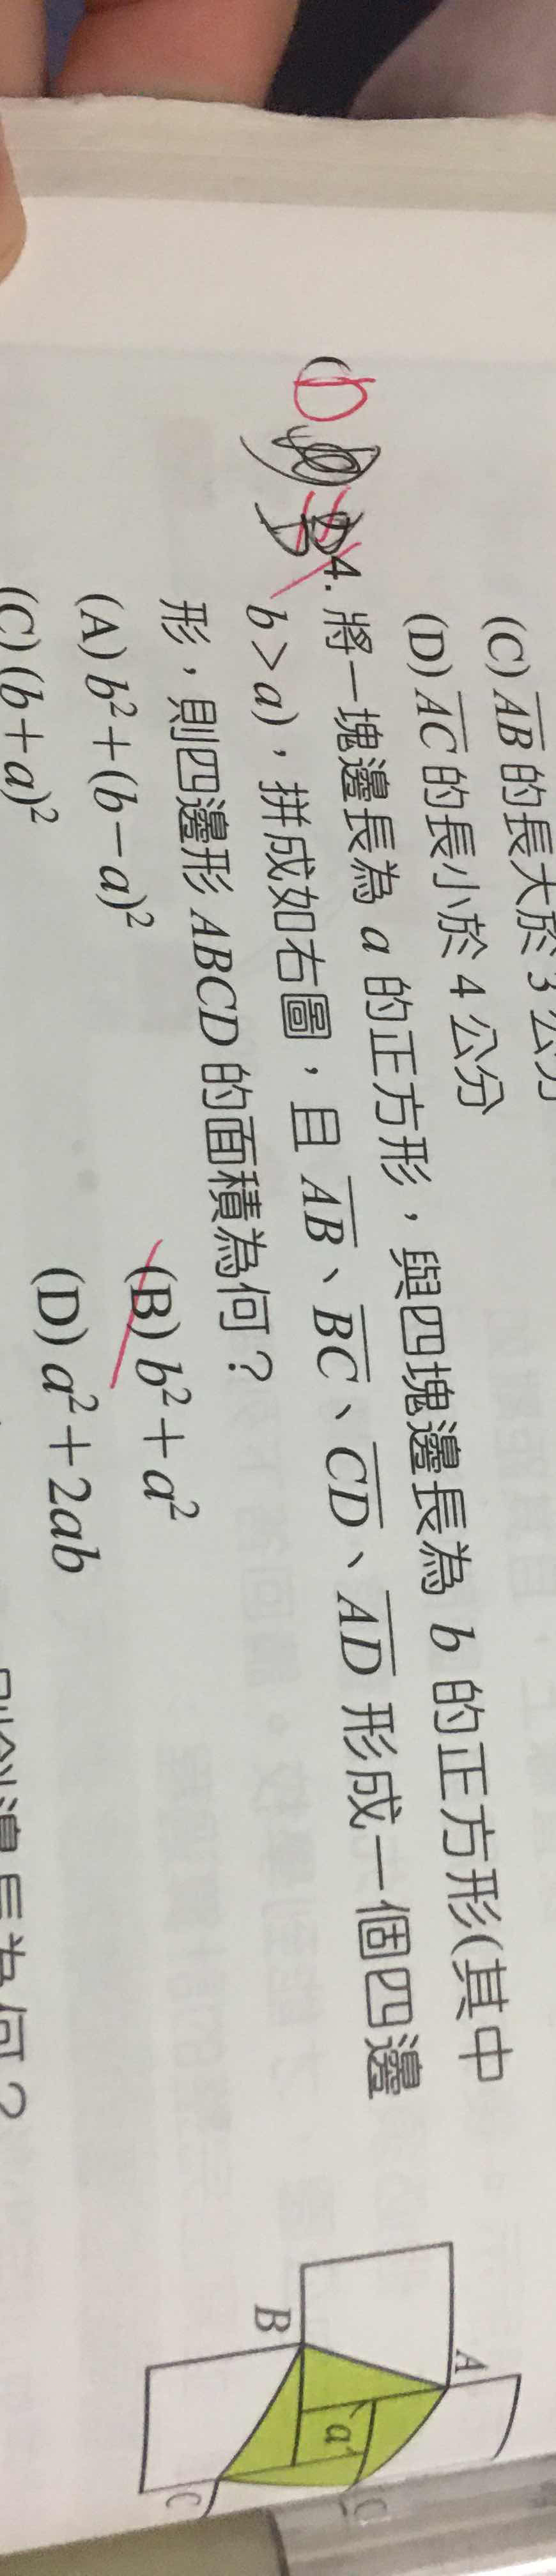 (C) AB 的長大於 3 公分
(D) AC 的長小於 4 公分
4. 將一塊邊長為 a 的正方形,與四塊邊長為 b 的正方形(其中
b>a),拼成如右圖,且 AB、BC、CD、AD 形成一個四邊
形,則四邊形 ABCD 的面積為何?
(A) b²+(b−a)² (B) b²+a²
(C) (b+a)² (D) a²+2ab
A
B
a
C
長為何?